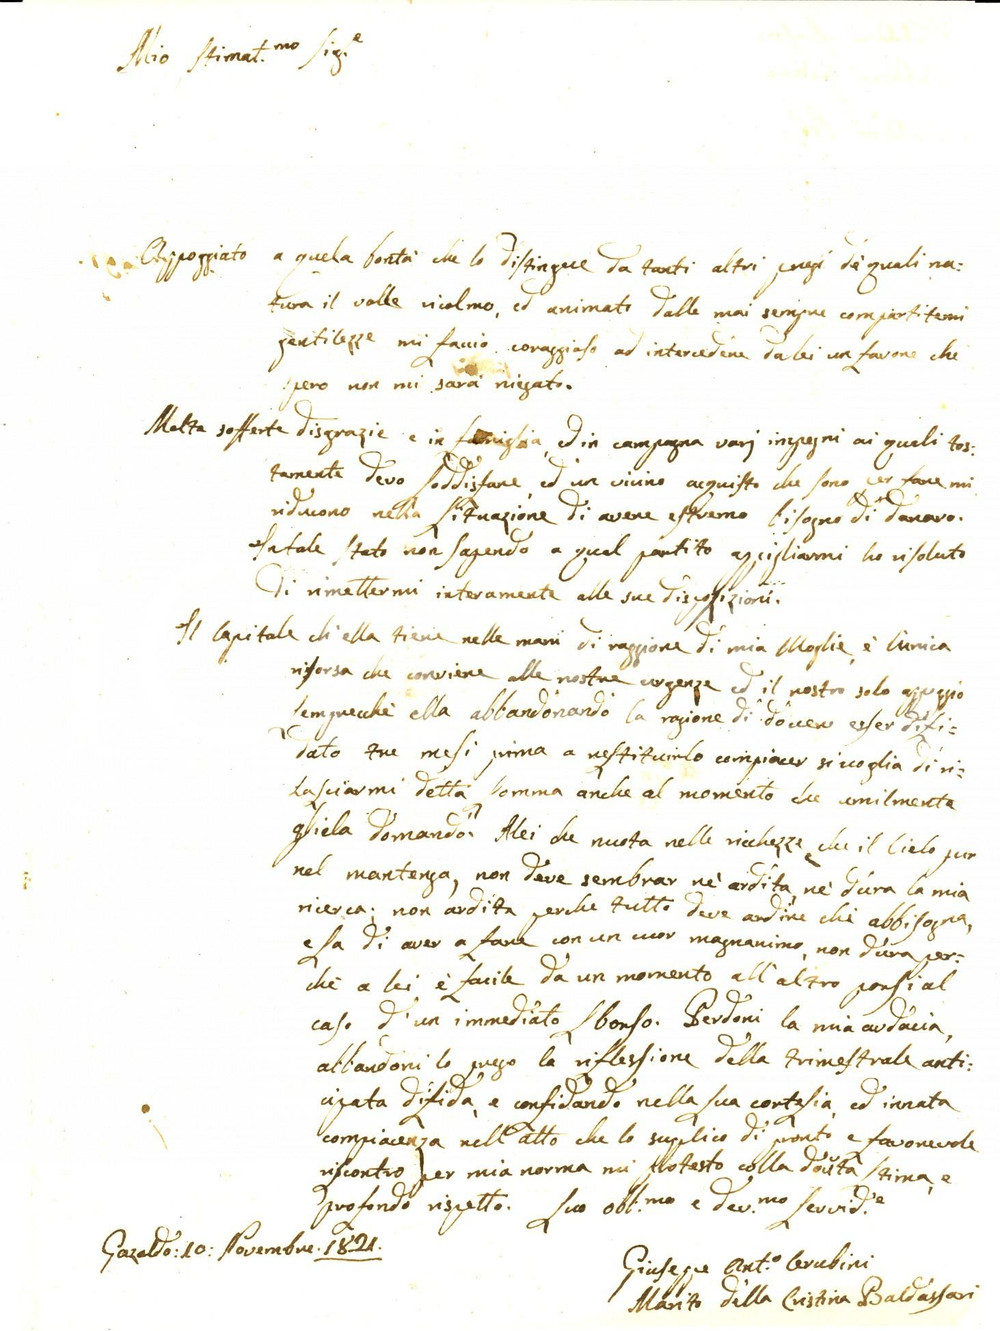 Mio Stimat.mo Sig.e
Appoggiato a quela bontà che lo distingue da tanti altri pregi de quali na:
tura il volle ricolmo, ed animato dalle mai sempre compartitemi
gentilezze mi faccio coraggioso ad intercedere da lei un favore che
spero non mi sarà niegato.
Molte sofferte disgrazie e in famiglia, ed in campagna varj impegni ai quali tos:
tamente devo soddisfare, ed un vicino acquisto che sono per fare mi
riducono nella situazione di avere estremo bisogno di danaro.
In tale stato non sapendo a qual partito appigliarmi ho risoluto
di rimettermi interamente alle sue disposizioni.
Il Capitale ch'ella tiene nelle mani di raggione di mia Moglie, è l'unica
risorsa che conviene alle nostre urgenze ed il nostro solo appoggio
sempreché ella abbandonando la ragione di dover esser difi:
dato tre mesi prima a restituirlo compiacer si voglia di ri:
lasciarmi detta somma anche al momento che umilmente
gliela domando. A lei che nuota nelle ricchezze, che il Cielo pur
nel mantenga, non deve sembrar nè ardita, nè dura la mia
ricerca; non ardita perche tutto deve ardire chi abbisogna,
e sa di aver a fare con un cuor magnanimo, non dura per:
chè a lei è facile da un momento all'altro porsi al
caso d'un immediato sborso. Perdoni la mia audacia,
abbandoni lo prego la riflessione della trimestrale anti:
cipata difida, e confidando nella sua cortesia, ed innata
compiacenza nell'atto che lo supplico di pronto e favorevole
riscontro per mia norma mi protesto colla dovuta stima, e
profondo rispetto. Suo obb.mo e dev.mo servid.e
Gazoldo: 10: Novembre. 1821.
Giuseppe Ant.o Cerubini
Marito della Cristina Baldassari